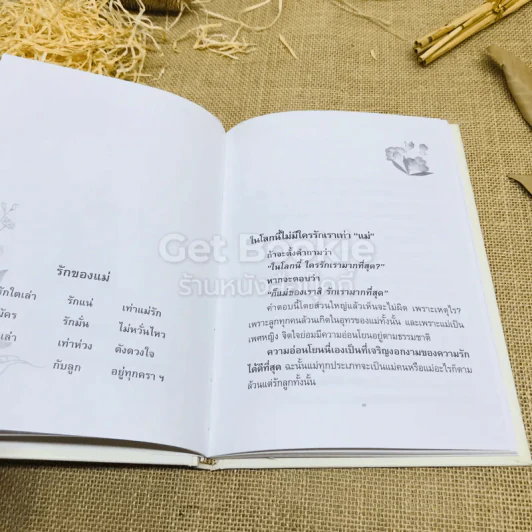 รักของแม่
รักใดเล่า รักแน่ เท่าแม่รัก
รักมั่น ไม่หวั่นไหว
เท่าห่วง ดังดวงใจ
กับลูก อยู่ทุกครา ฯ
ในโลกนี้ไม่มีใครรักเราเท่า "แม่"
ถ้าจะตั้งคำถามว่า
"ในโลกนี้ ใครรักเรามากที่สุด?"
หากจะตอบว่า
"ก็แม่ของเราสิ รักเรามากที่สุด"
คำตอบนี้โดยส่วนใหญ่แล้วเห็นจะไม่ผิด เพราะเหตุไร?
เพราะลูกทุกคนล้วนเกิดในอุทรของแม่ทั้งนั้น และเพราะแม่เป็น
เพศหญิง จิตใจย่อมมีความอ่อนโยนอยู่ตามธรรมชาติ
ความอ่อนโยนนี้เองเป็นที่เจริญงอกงามของความรัก
ได้ดีที่สุด ฉะนั้นแม่ทุกประเภทจะเป็นแม่คนหรือแม่อะไรก็ตาม
ล้วนแต่รักลูกทั้งนั้น
Get Bookie